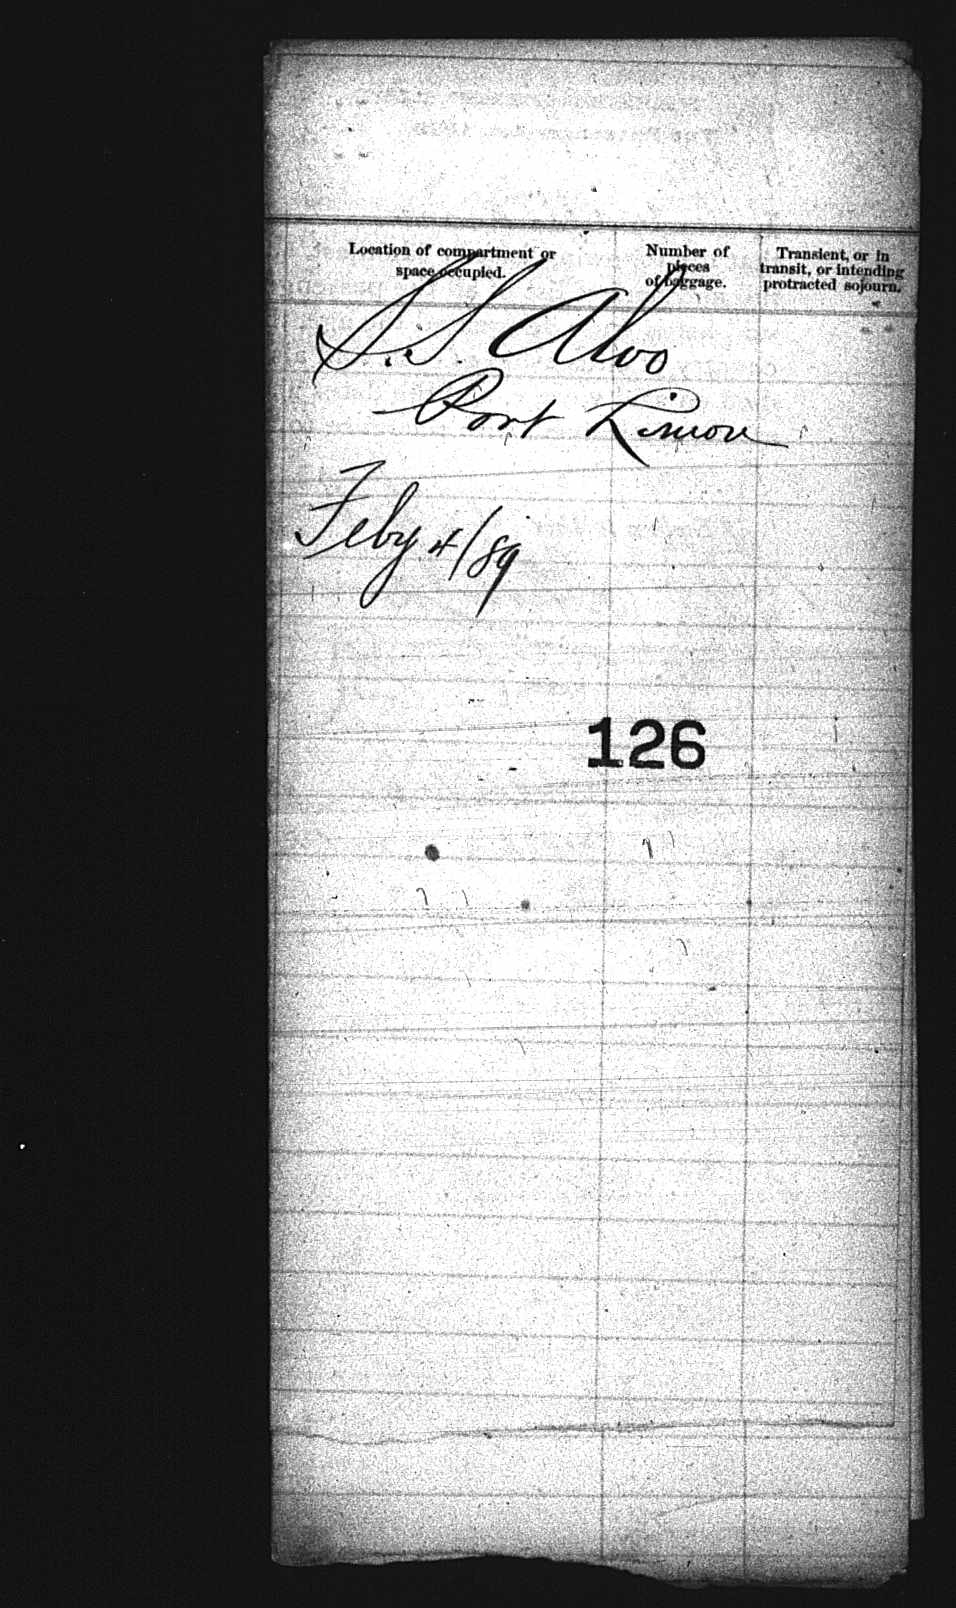 Location of compartment or
space occupied.
Number of
pieces
of baggage.
Transient, or in
transit, or intending
protracted sojourn.
S.S. Alvo
Port Limon
Feby 4/89
126